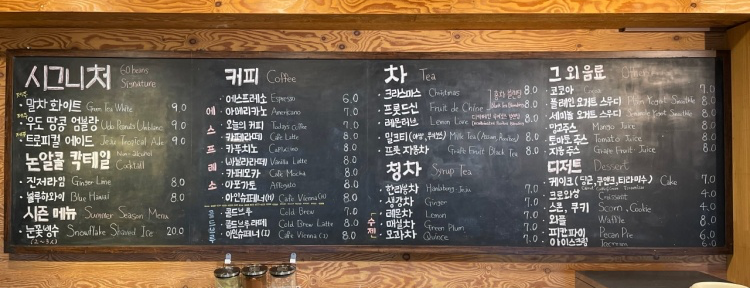 시그니처 60beans Signature
말차 화이트 Green Tea White 9.0
우도 땅콩 엄블랑 Udo Peanuts Umblanc 9.0
트로피컬 에이드 Jeju Tropical Ade 9.0
논알콜 칵테일 Non-alcohol Cocktail
진저라임 Ginger Lime 8.0
블루하와이 Blue Hawaii 8.0
시즌 메뉴 Summer Season Menu
눈꽃빙수 Snowflake Shaved Ice 20.0
커피 Coffee
에스프레소
에스프레소 Espresso 6.0
아메리카노 Americano 7.0
오늘의 커피 Today's Coffee 7.0
카페라떼 Cafe Latte 8.0
카푸치노 Cappuccino 8.0
바닐라라떼 Vanilla Latte 8.0
카페모카 Cafe Mocha 8.0
아포가토 Affogato 8.0
아인슈페너(H) Cafe Vienna (H) 8.0
콜드브루 Cold Brew 7.0
콜드브루라떼 Cold Brew Latte 8.0
아인슈페너(I) Cafe Vienna (I) 8.0
차 Tea
크리스마스 Christmas 8.0
프룻드신 Fruit de Chine 8.0
레몬러브 Lemon Love 8.0
밀크티 Milk Tea 8.0
프룻 자몽차 Grape Fruit Black Tea 8.0
청차 Syrup Tea
수제
한라봉차 Hanlabong Tea 8.0
생강차 Ginger 8.0
레몬차 Lemon 8.0
매실차 Green Plum 8.0
모과차 Quince 8.0
그 외 음료 Others
코코아 8.0
플레인 요거트 스무디 Plain Yogurt Smoothie 8.0
세미놀 요거트 스무디 Yogurt Smoothie 8.0
망고주스 Mango Juice 8.0
토마토 주스 Tomato Juice 8.0
자몽 주스 Grape Fruit Juice 8.0
디저트 Dessert
케이크 (당근, 쿠앤크, 티라미수) Cake 7.0
크로와상 Croissant 4.0
스콘, 쿠키 Scorn, Cookie 4.0
와플 Waffle 8.0
피칸파이 Pecan Pie 7.0
아이스크림 Icecream 6.0